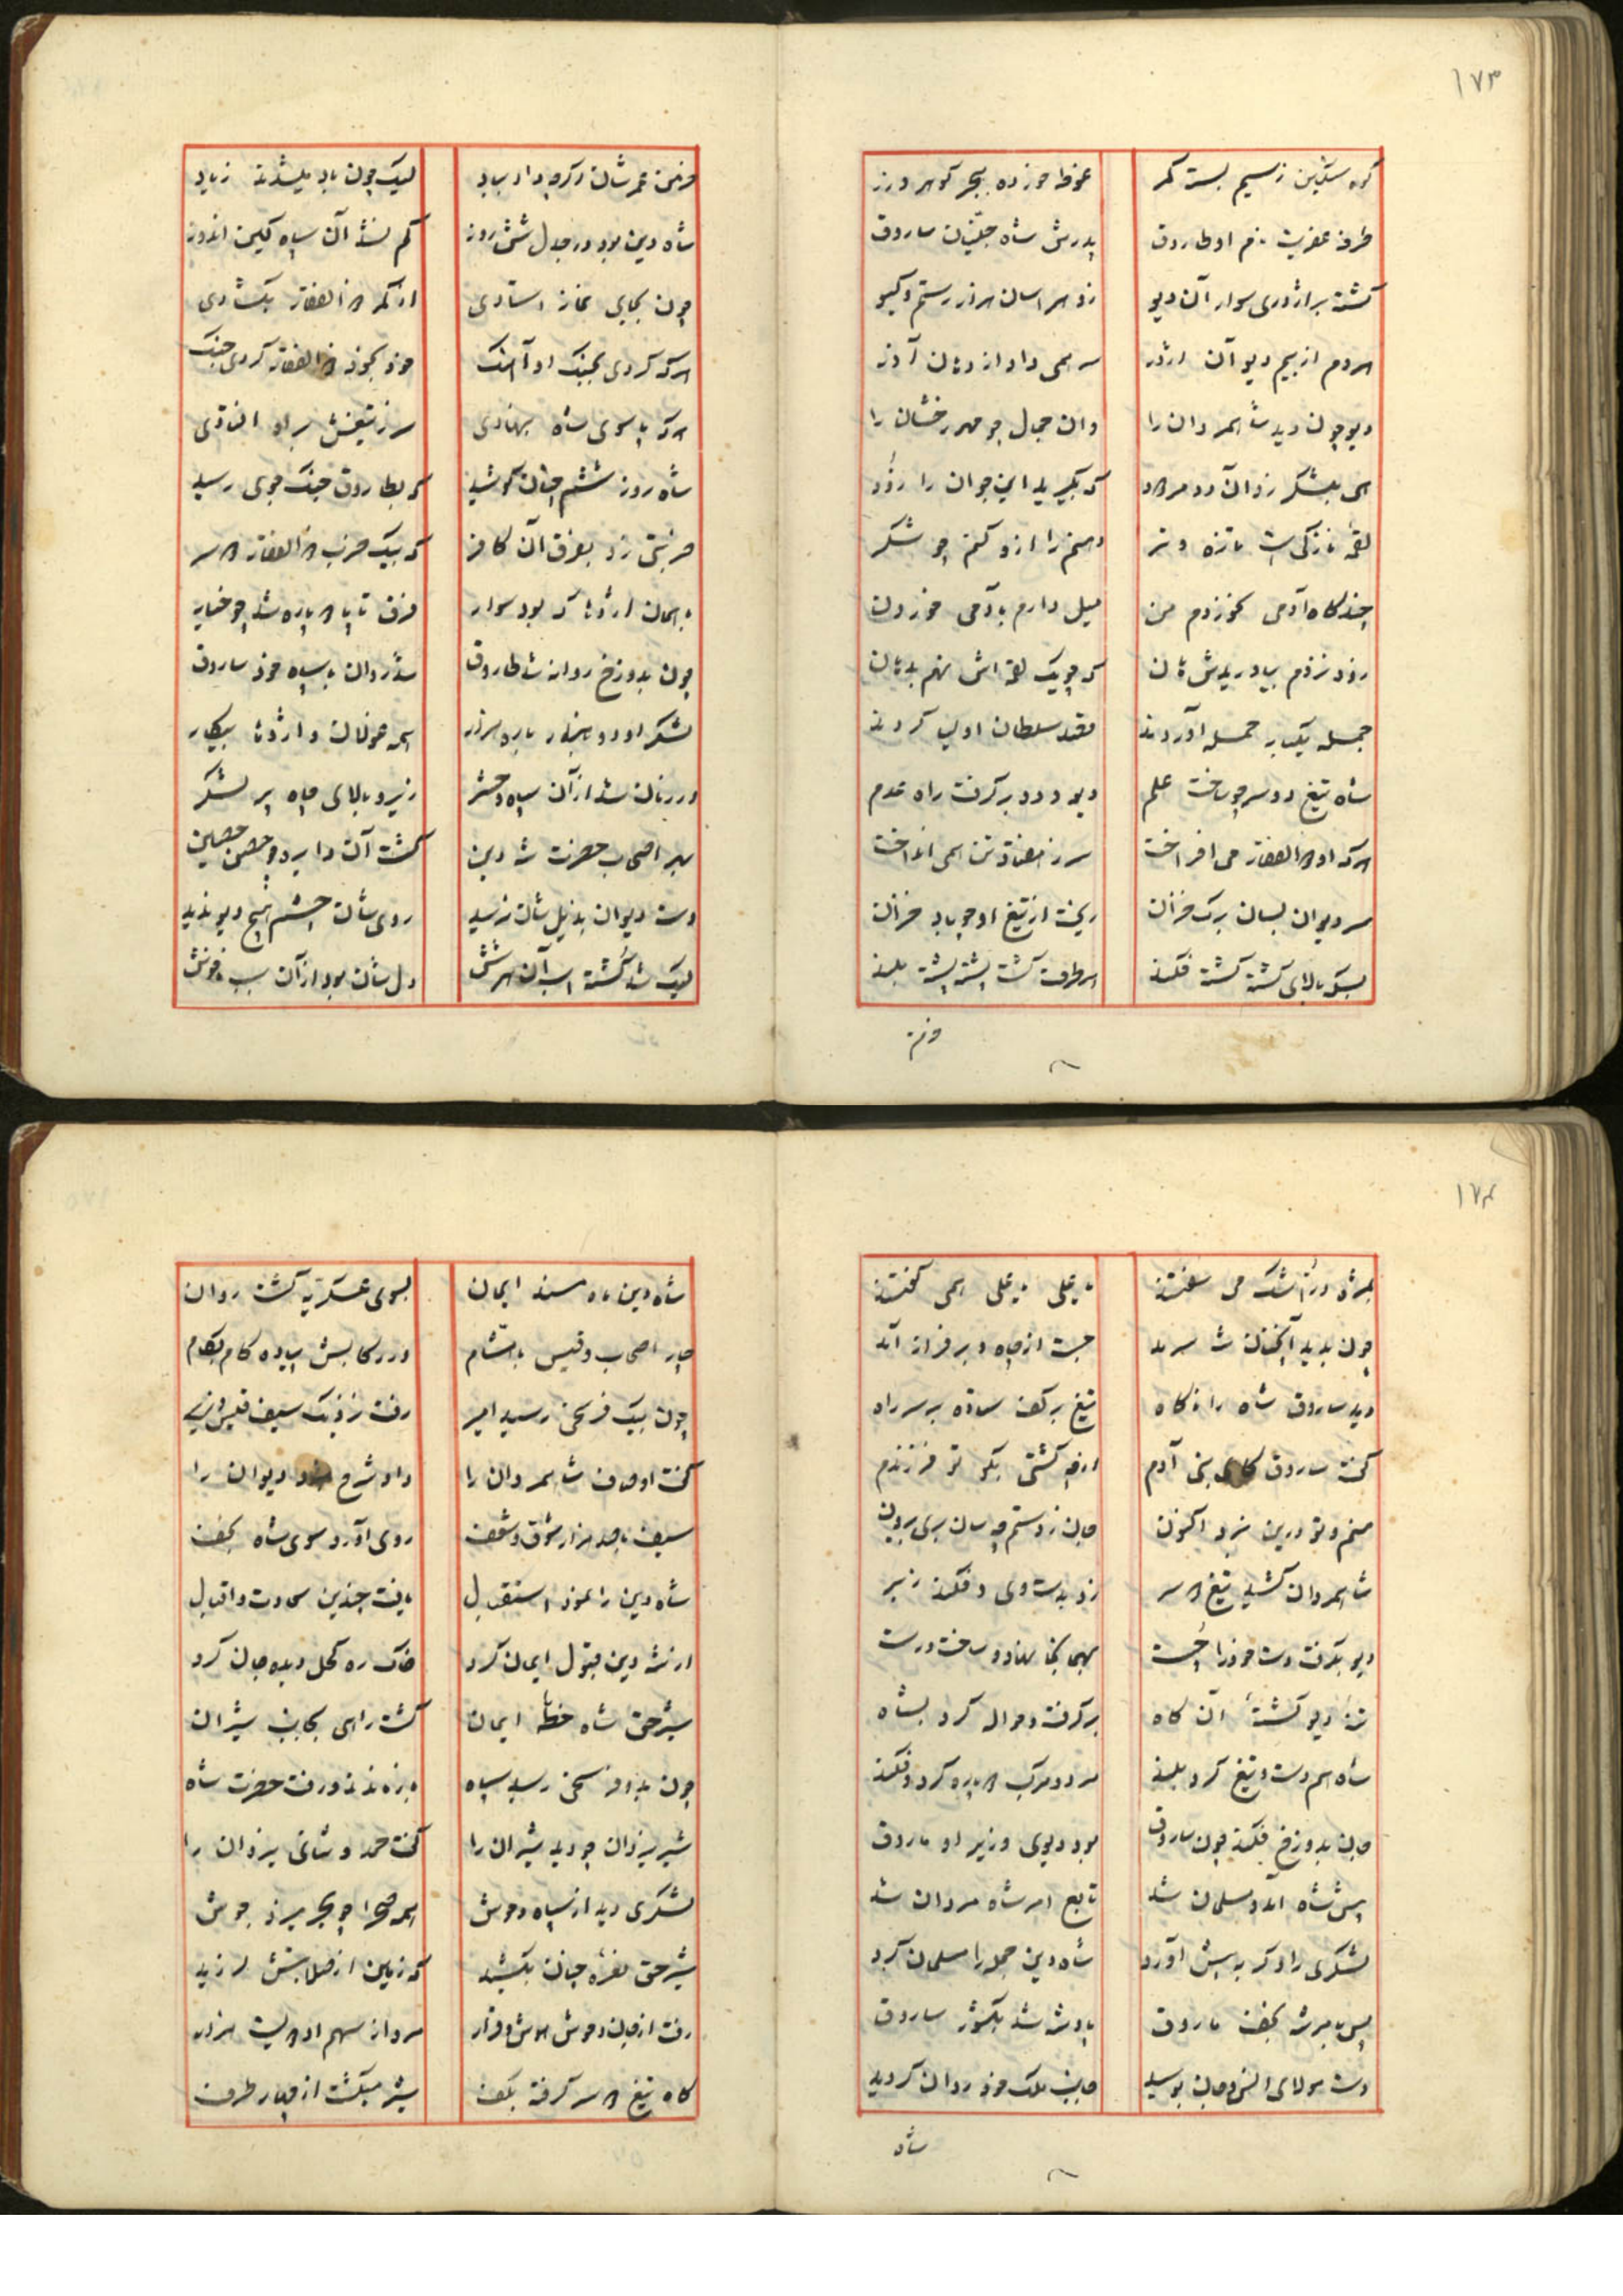 ۱۷۳
کوه سنگین ز سیم بسته کمر
غوطه خورده ببحر گوهر و زر
طرفه عفریت نام او طاروق
پدرش شاه جنیان ساروق
گشته بر اژدری سوار آن دیو
زو هراسان هزار رستم و گیو
هر دم از بیم دیو آن اژدر
سر همی داد از دهان آذر
دیو چون دید شاهمردان را
وان جمال چو مهر رخشان را
که بگیرید این جوان را زود
لقمه نازکی است تازه و تر
دهنم را ازو کنم چو شکر
چندگاه آدمی نخوردم من
میل دارم بآدمی خوردن
زود نزدم بیاوریدش هان
که چو یک لقمه اش نهم بدهان
جمله یکباره حمله آوردند
قصد سلطان اولیا کردند
شاه تیغ دو سر چو ساخت علم
دیو و دد برگرفت راه عدم
هرگه او ذوالفقار می افراخت
سر ز هفتاد تن همی انداخت
سر دیوان بسان برگ خزان
ریخت از تیغ او چو باد خزان
بسکه بالای کشته کشته فکند
هر طرف کشت پشته پشته بلند
خرمن عمرشان اگرچه داد بباد
لیک چون باد میشدند زیاد
شاه دین بود در جدل شش روز
کم نشد آن سپاه کین اندوز
چون بجای نماز استادی
از کمر ذوالفقار بگشادی
هر که کردی بجنگ او آهنگ
خود بخود ذوالفقار کردی جنگ
هر که پا سوی شاه بنهادی
سر ز تیغش براه افتادی
شاه روز ششم چنان کوشید
که بطاروق جنگ جوی رسید
ضربتی زد بفرق آن کافر
که بیک ضرب ذوالفقار دو سر
با همان اژدها که بود سوار
فرق تا پا دو پاره شد چو خیار
چون بدوزخ روانه شد طاروق
شد روان با سپاه خود ساروق
همه غولان و اژدها پیکار
در زمان شد از آن سپاه و حشر
زیر و بالای چاه پر لشکر
بهر اصحاب حضرت شه دین
گشت آن دایره چو حصن حصین
دست دیوان بذیل شان نرسید
روی شان چشم هیچ دیو ندید
لیک شد کشته اسب آن هر شش
دل شان بود از آن سبب ناخوش
۱۷۴
بمژه در اشک می سفتند
یا علی یا علی همی گفتند
چون بدید آنچنان شه سرمد
جست از چاه و بر فراز آمد
دید ساروق شاه را ناگاه
تیغ بر کف ستاده بر سر راه
گفت ساروق کای بنی آدم
از چه کشتی بگو تو فرزندم
جان ز دستم چه سان بری بیرون
شاهمردان کشید تیغ دو سر
زد بدست وی و فکند بزیر
دیو بگرفت دست خود را چست
بهمانجا نهاد و ساخت درست
برگرفت و حواله کرد بشاه
شاه هم دست و تیغ کرد بلند
مرد و مرکب دو پاره کرد و فکند
جان بدوزخ فکند چون ساروق
بود دیوی وزیر او ماروق
پیش شاه آمد و مسلمان شد
تابع امر شاه مردان شد
لشکری را دگر به پیش آورد
شاه دین جمله را مسلمان کرد
پس بامر شه نجف ماروق
پادشه شد بکشور ساروق
دست مولای انس و جان بوسید
جانب ملک خود روان گردید
شاه دین ماه مسند ایمان
بسوی عسکریه گشت روان
چار اصحاب و قیس با هشام
در رکابش پیاده گام بگام
چون بیک فرسخی رسید امیر
گفت اوصاف شاهمردان را
داد شرح نبرد دیوان را
سیف با صد هزار شوق و شعف
روی آورد سوی شاه نجف
شاه دین را نمود استقبال
یافت چندین سعادت و اقبال
از شه دین قبول ایمان کرد
خاک ره کحل دیده جان کرد
شیر حق شاه خطه ایمان
گشت راهی بجانب شیران
چون بدو فرسخی رسید سپاه
باز ماندند و رفت حضرت شاه
شیر یزدان چو دید شیران را
گفت حمد و ثنای یزدان را
لشکری دید از سباع و وحوش
همه صحرا چو بحر میزد جوش
شیر حق نعره چنان بکشید
که زمین از صلابتش لرزید
رفت از جان وحوش هوش و قرار
مرد از سهم او دویست هزار
گاه تیغ دو سر گرفته بکف
شیر میکشت از چهار طرف
شاه